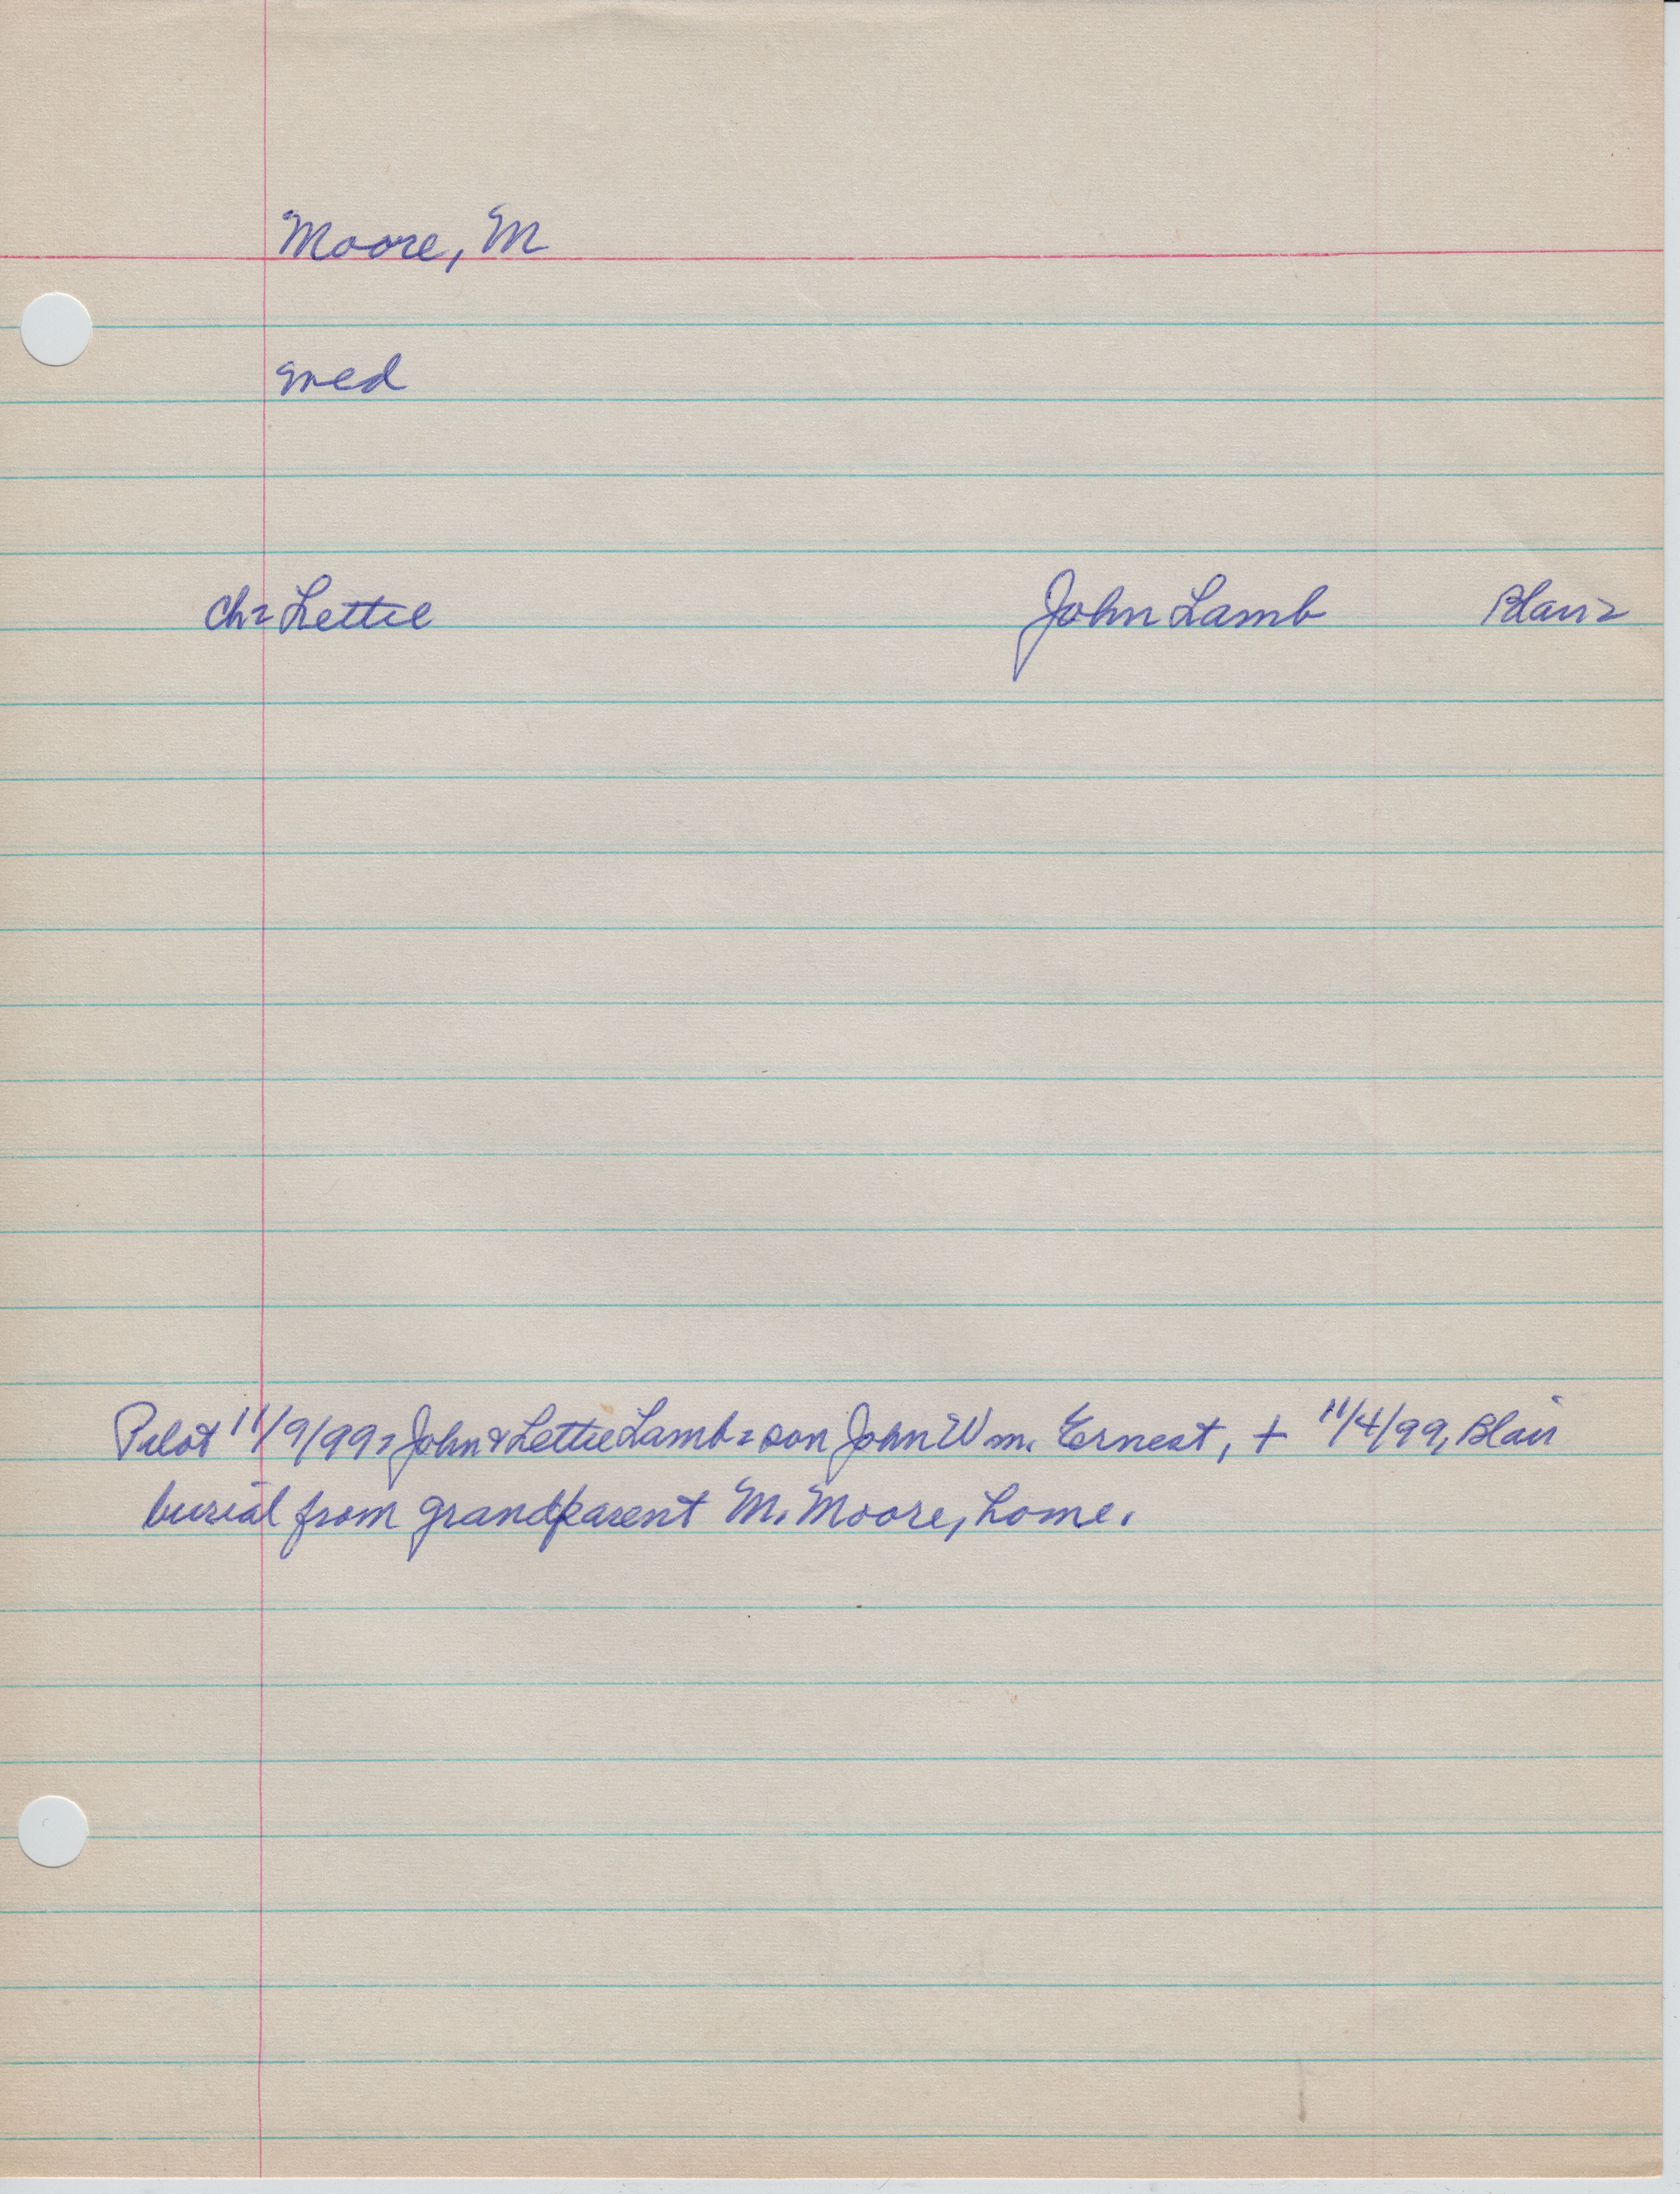 Moore, M
med
ch= Lettie John Lamb Blair=
Pilot 11/9/99= John & Lettie Lamb= son John Wm. Ernest, + 11/4/99, Blair
burial from grandparent M. Moore, home.